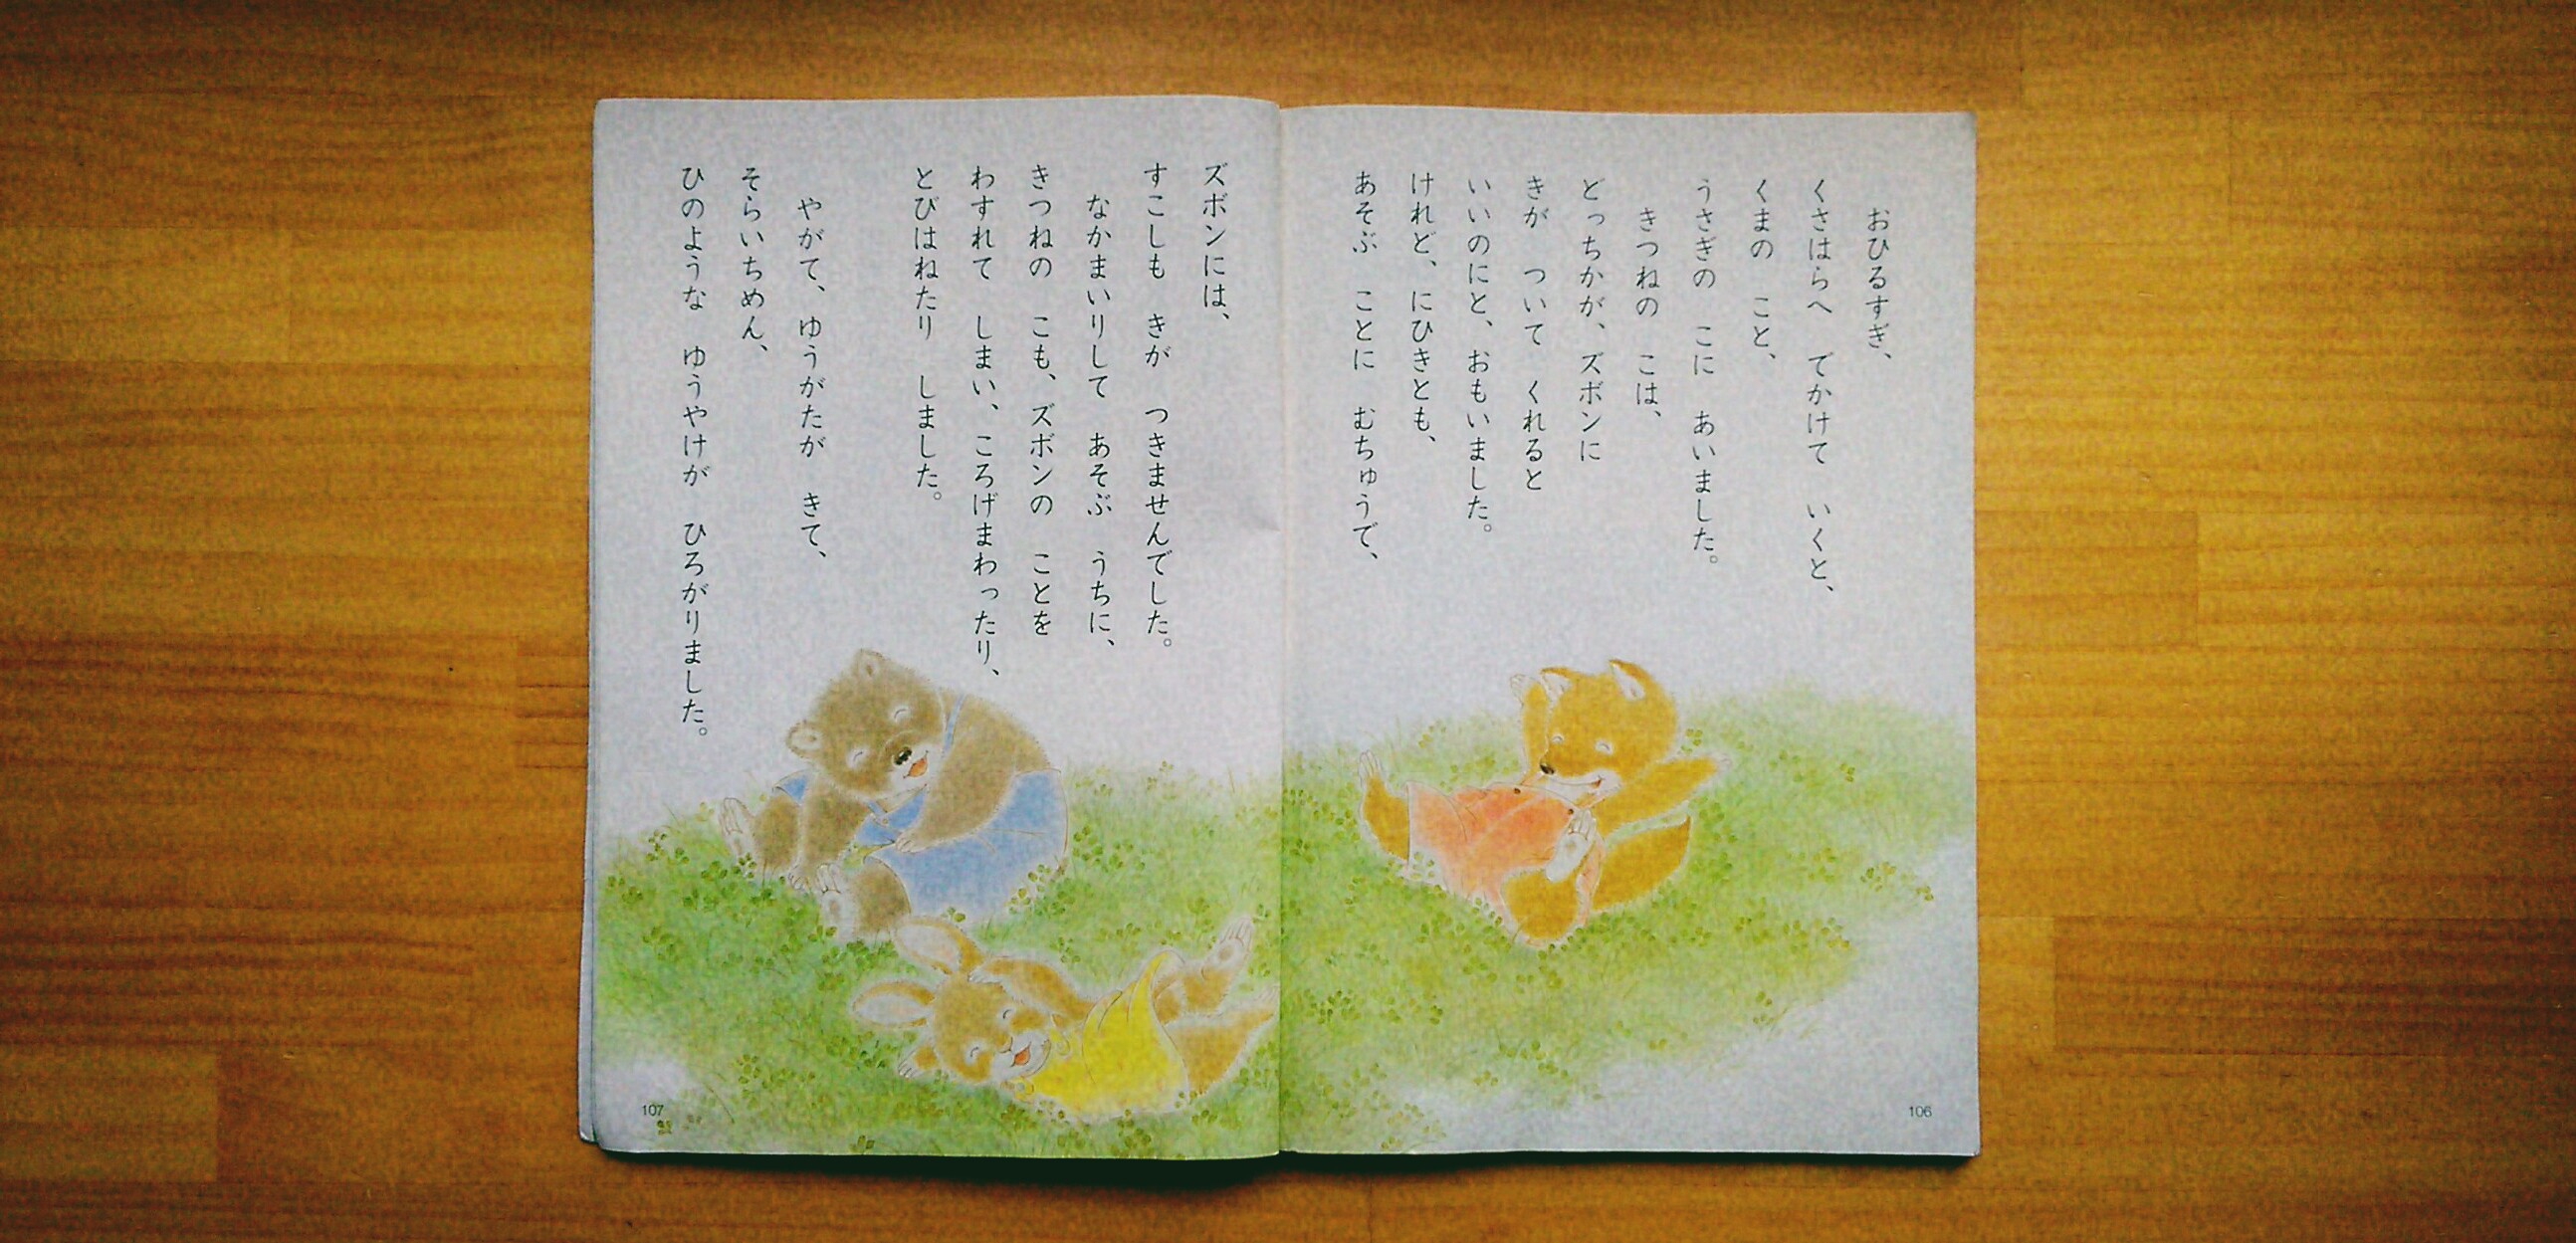 おひるすぎ、
くさはらへ でかけて いくと、
くまの こと、
うさぎの こに あいました。
きつねの こは、
どっちかが、ズボンに
きが ついて くれると
いいのにと、おもいました。
けれど、にひきとも、
あそぶ ことに むちゅうで、
106
ズボンには、
すこしも きが つきませんでした。
なかまいりして あそぶ うちに、
きつねの こも、ズボンの ことを
わすれて しまい、ころげまわったり、
とびはねたり しました。
やがて、ゆうがたが きて、
そらいちめん、
ひのような ゆうやけが ひろがりました。
107